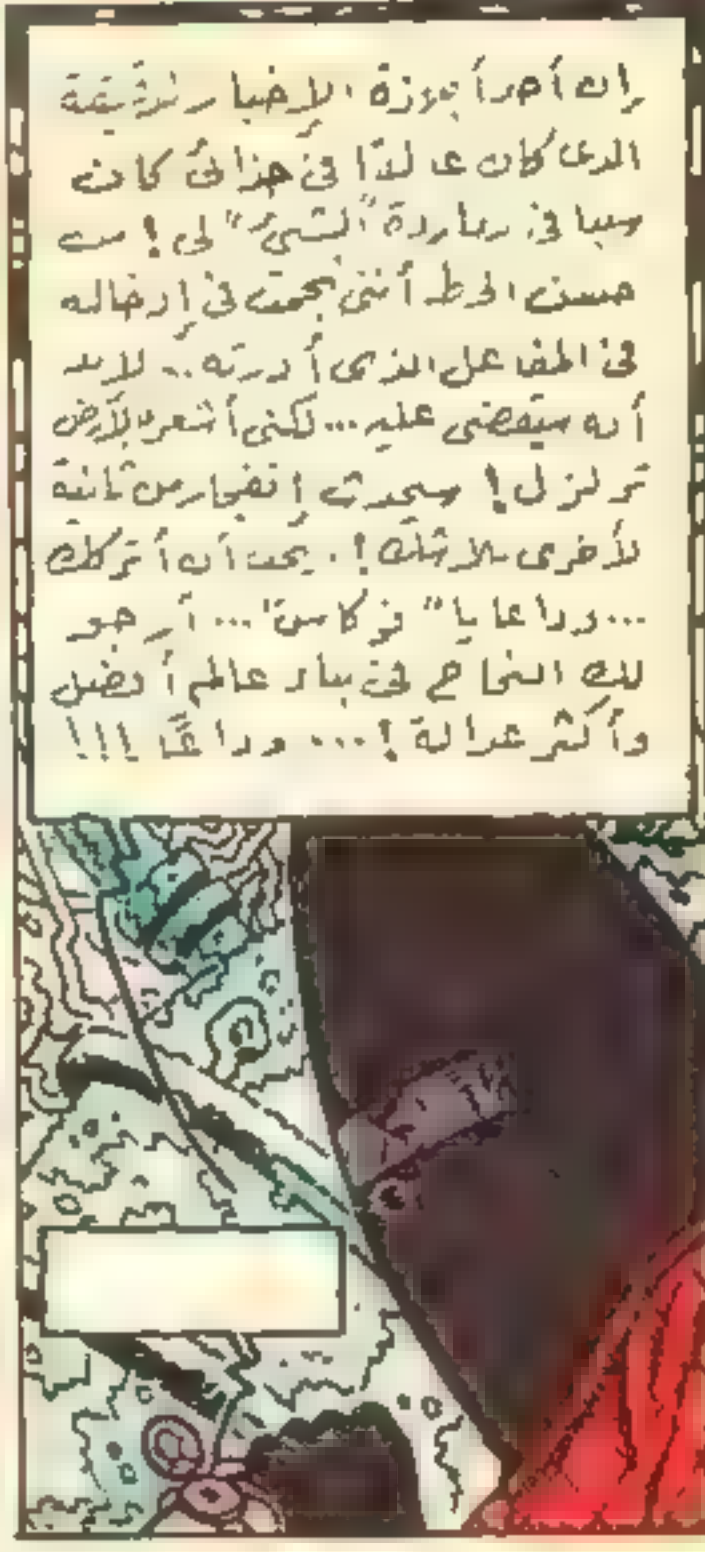 إن أحد أجهزة الإختبار الدقيقة
الذى كان عالقًا فى حذائى كانت
سببا فى مطاردة "الشئ" لى ! من
حسن الحظ أننى نجحت فى إدخاله
فى المفاعل الذى أدرته .. لابد
أنه سيقضى عليه ... لكنى أشعر بالأرض
تزلزل ! سيحدث إنفجار من ثانية
لأخرى بلا شك ! . يجب أن أترككِ
... وداعا يا " " ... أرجو
لكِ النجاح فى بناء عالم أفضل
وأكثر عدالة ! ... وداعًا !!!